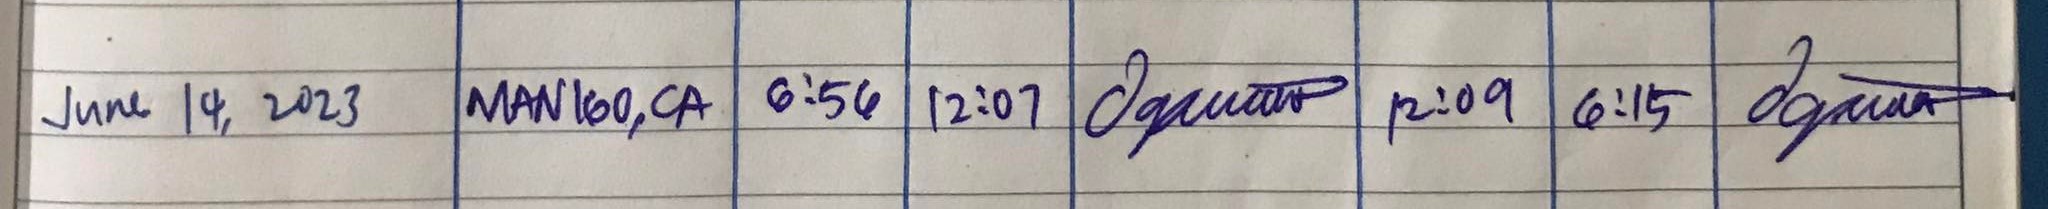 June 14, 2023 MANIGO, CA 6:56 12:07 12:09 6:15